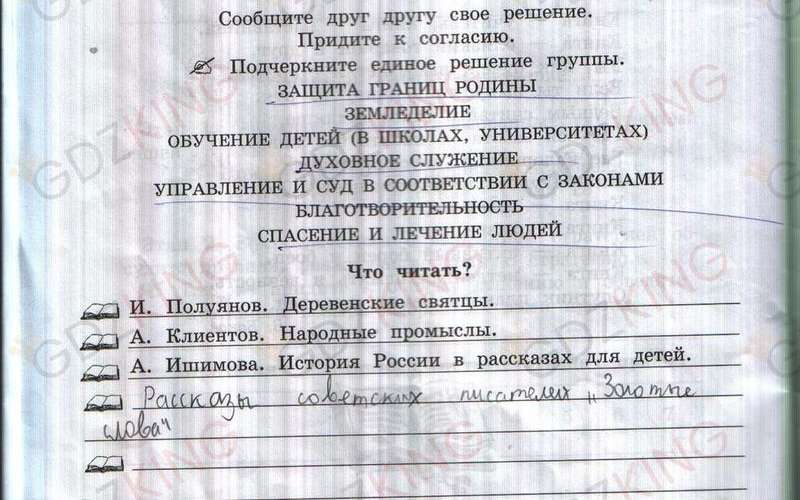 Сообщите друг другу свое решение.
Придите к согласию.
Подчеркните единое решение группы.
ЗАЩИТА ГРАНИЦ РОДИНЫ
ЗЕМЛЕДЕЛИЕ
ОБУЧЕНИЕ ДЕТЕЙ (В ШКОЛАХ, УНИВЕРСИТЕТАХ)
ДУХОВНОЕ СЛУЖЕНИЕ
УПРАВЛЕНИЕ И СУД В СООТВЕТСТВИИ С ЗАКОНАМИ
БЛАГОТВОРИТЕЛЬНОСТЬ
СПАСЕНИЕ И ЛЕЧЕНИЕ ЛЮДЕЙ
Что читать?
И. Полуянов. Деревенские святцы.
А. Клиентов. Народные промыслы.
А. Ишимова. История России в рассказах для детей.
Рассказы советских писателей „Золотые
слова"
GDZKING